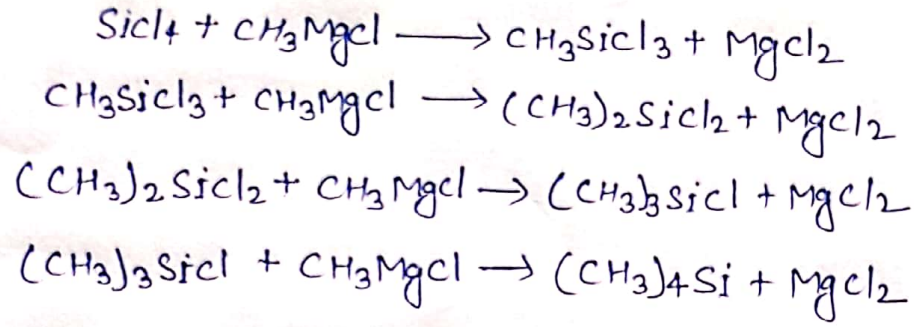 SiCl4 + CH3MgCl ⟶ CH3SiCl3 + MgCl2
CH3SiCl3 + CH3MgCl ⟶ (CH3)2SiCl2 + MgCl2
(CH3)2SiCl2 + CH3MgCl → (CH3)3SiCl + MgCl2
(CH3)3SiCl + CH3MgCl → (CH3)4Si + MgCl2